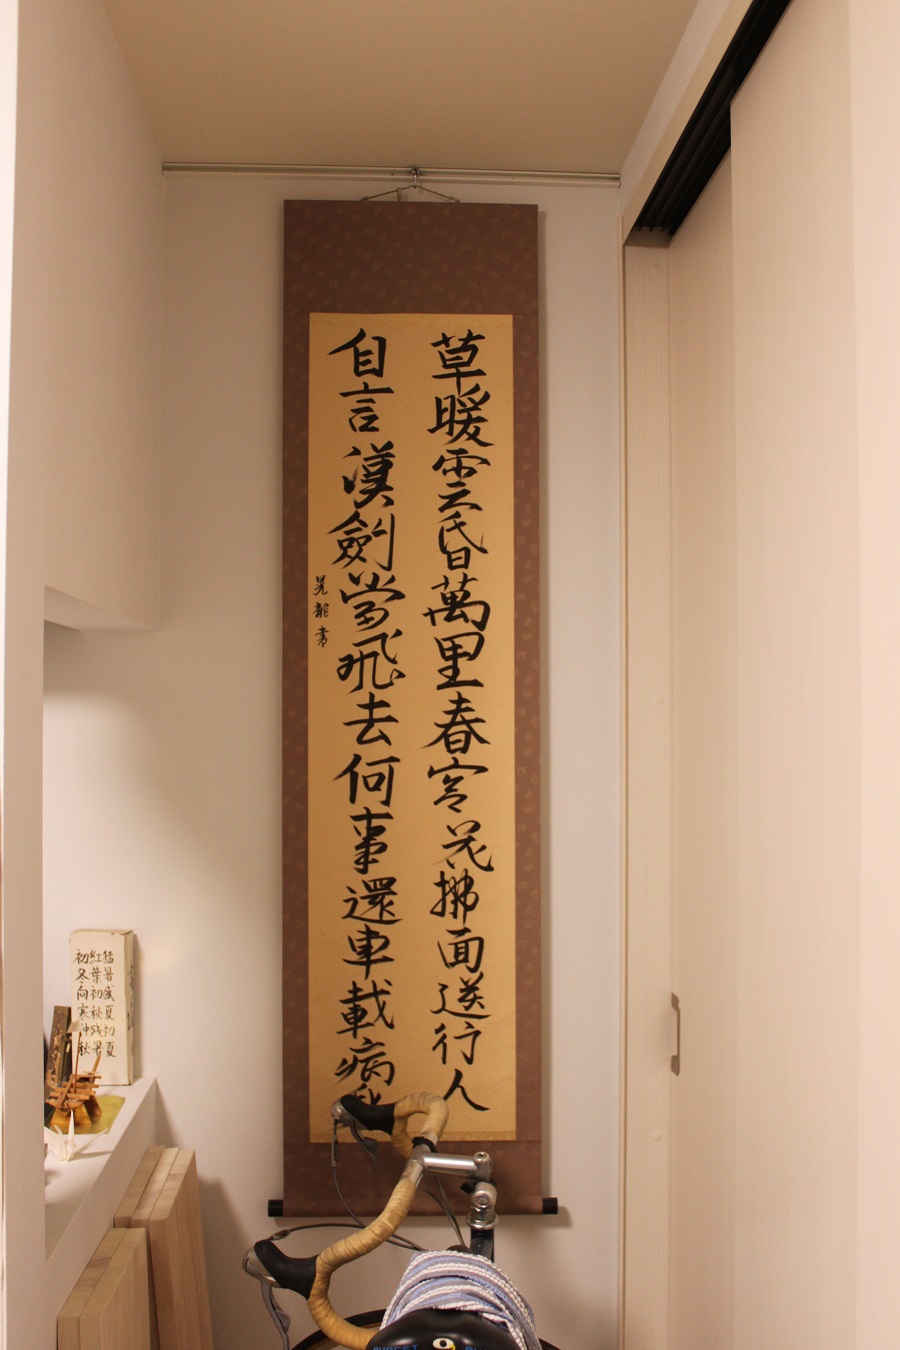 草暖雲昏萬里春宮花拂面送行人
自言漢劍當飛去何事還車載病
晃龍書
猛暑盛夏初夏
紅葉初秋残暑
初冬向寒仲秋